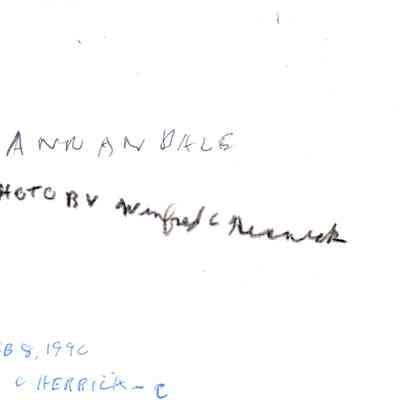 ANNANDALE
HOTO BY Winfred C
B 8, 1990
C HERRICK - C